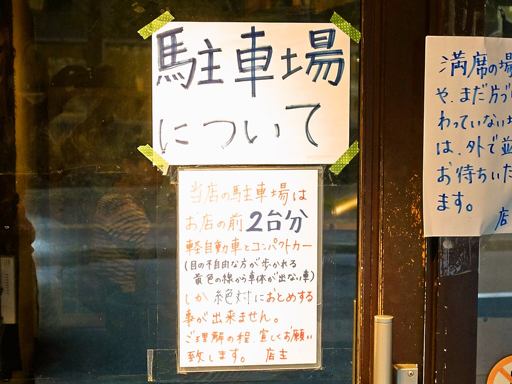 駐車場
について
当店の駐車場は
お店の前2台分
軽自動車とコンパクトカー
(目の不自由な方が歩かれる
黄色の線から車体が出ない車)
しか絶対におとめする
事が出来ません。
ご理解の程、宜しくお願い
致します。 店主
満席の場
や、まだ片づ
わっていない場
は、外で並
お待ちいた
ます。
店